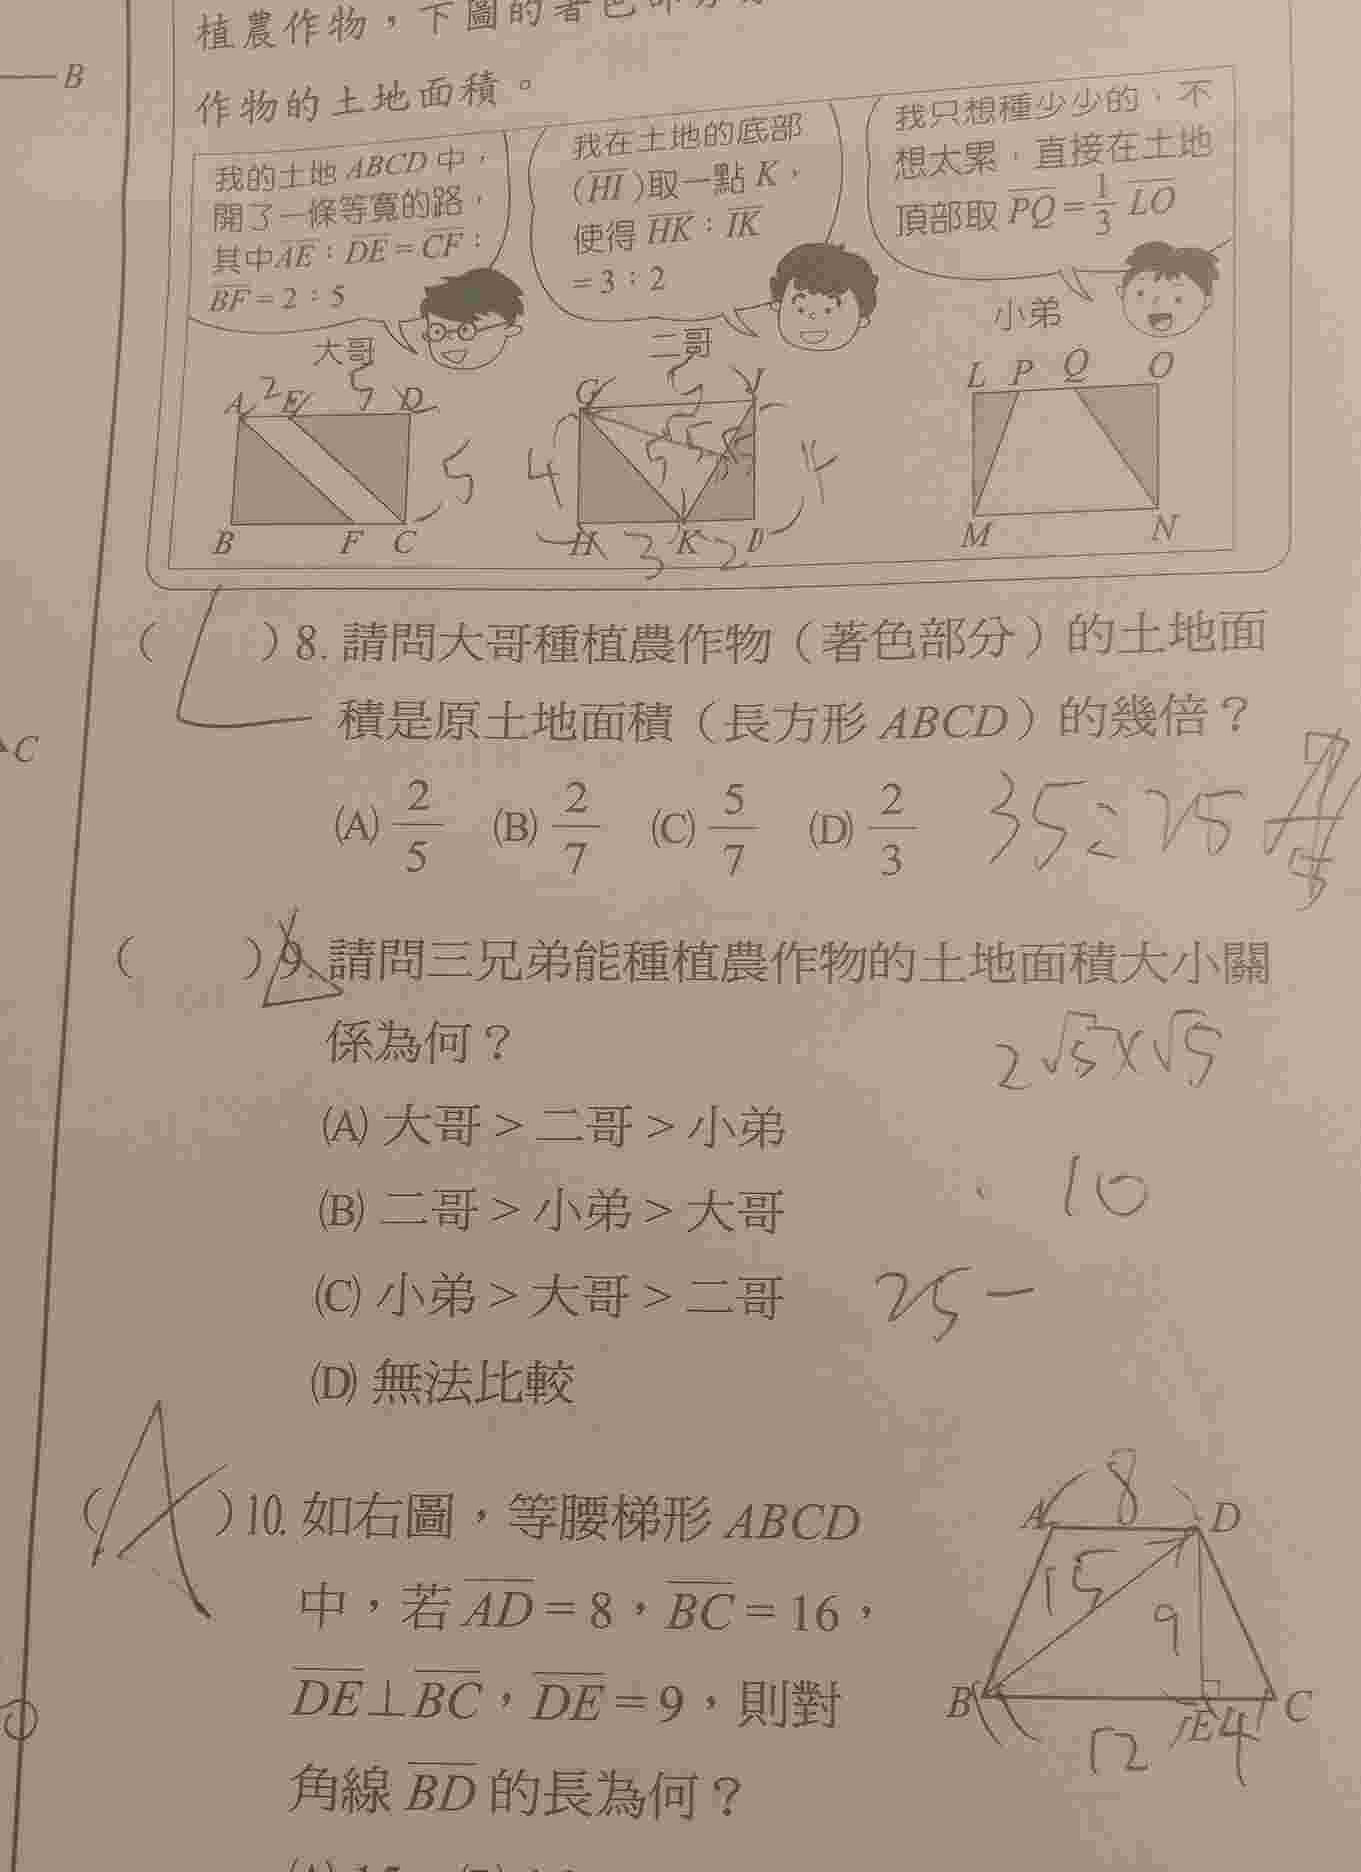 植農作物，下圖的著色部
B
作物的土地面積。
我的土地 ABCD 中，
開了一條等寬的路，
其中AE：DE=CF：
BF=2：5
大哥
我在土地的底部
(HI)取一點 K，
使得 HK：IK
=3：2
二哥
我只想種少少的，不
想太累，直接在土地
頂部取 PQ=1/3 LO
小弟
A 2 E 5 D
5
B F C
G 5 J
4 5 5 4
H 3 K 2 I
L P Q O
M N
( ) 8. 請問大哥種植農作物（著色部分）的土地面
積是原土地面積（長方形 ABCD）的幾倍？
C
(A) 2/5 (B) 2/7 (C) 5/7 (D) 2/3 35:25 7/5
( ) 9. 請問三兄弟能種植農作物的土地面積大小關
係為何？
2√5×√5
(A) 大哥 > 二哥 > 小弟
10
(B) 二哥 > 小弟 > 大哥
(C) 小弟 > 大哥 > 二哥 25-
(D) 無法比較
(A) 10. 如右圖，等腰梯形 ABCD
中，若 AD=8，BC=16，
DE⊥BC，DE=9，則對
角線 BD 的長為何？
8
A D
15 9
B E C
12 4